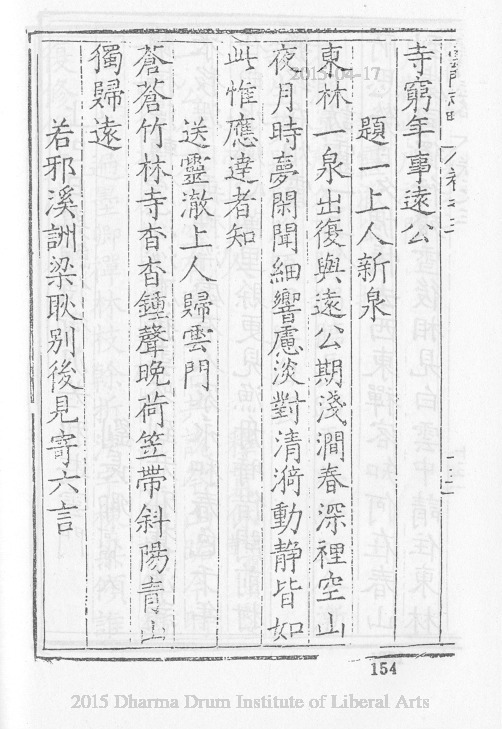 寺窮年事遠公
題一上人新泉
東林一泉出復與遠公期淺澗春深裡空山
夜月時夢閑聞細響慮淡對清漪動静皆如
此惟應達者知
送靈澈上人歸雲門
蒼蒼竹林寺杳杳鐘聲晚荷笠帶斜陽青山
獨歸遠
若邪溪詶梁耿别後見寄六言
2015-04-17
154
2015 Dharma Drum Institute of Liberal Arts